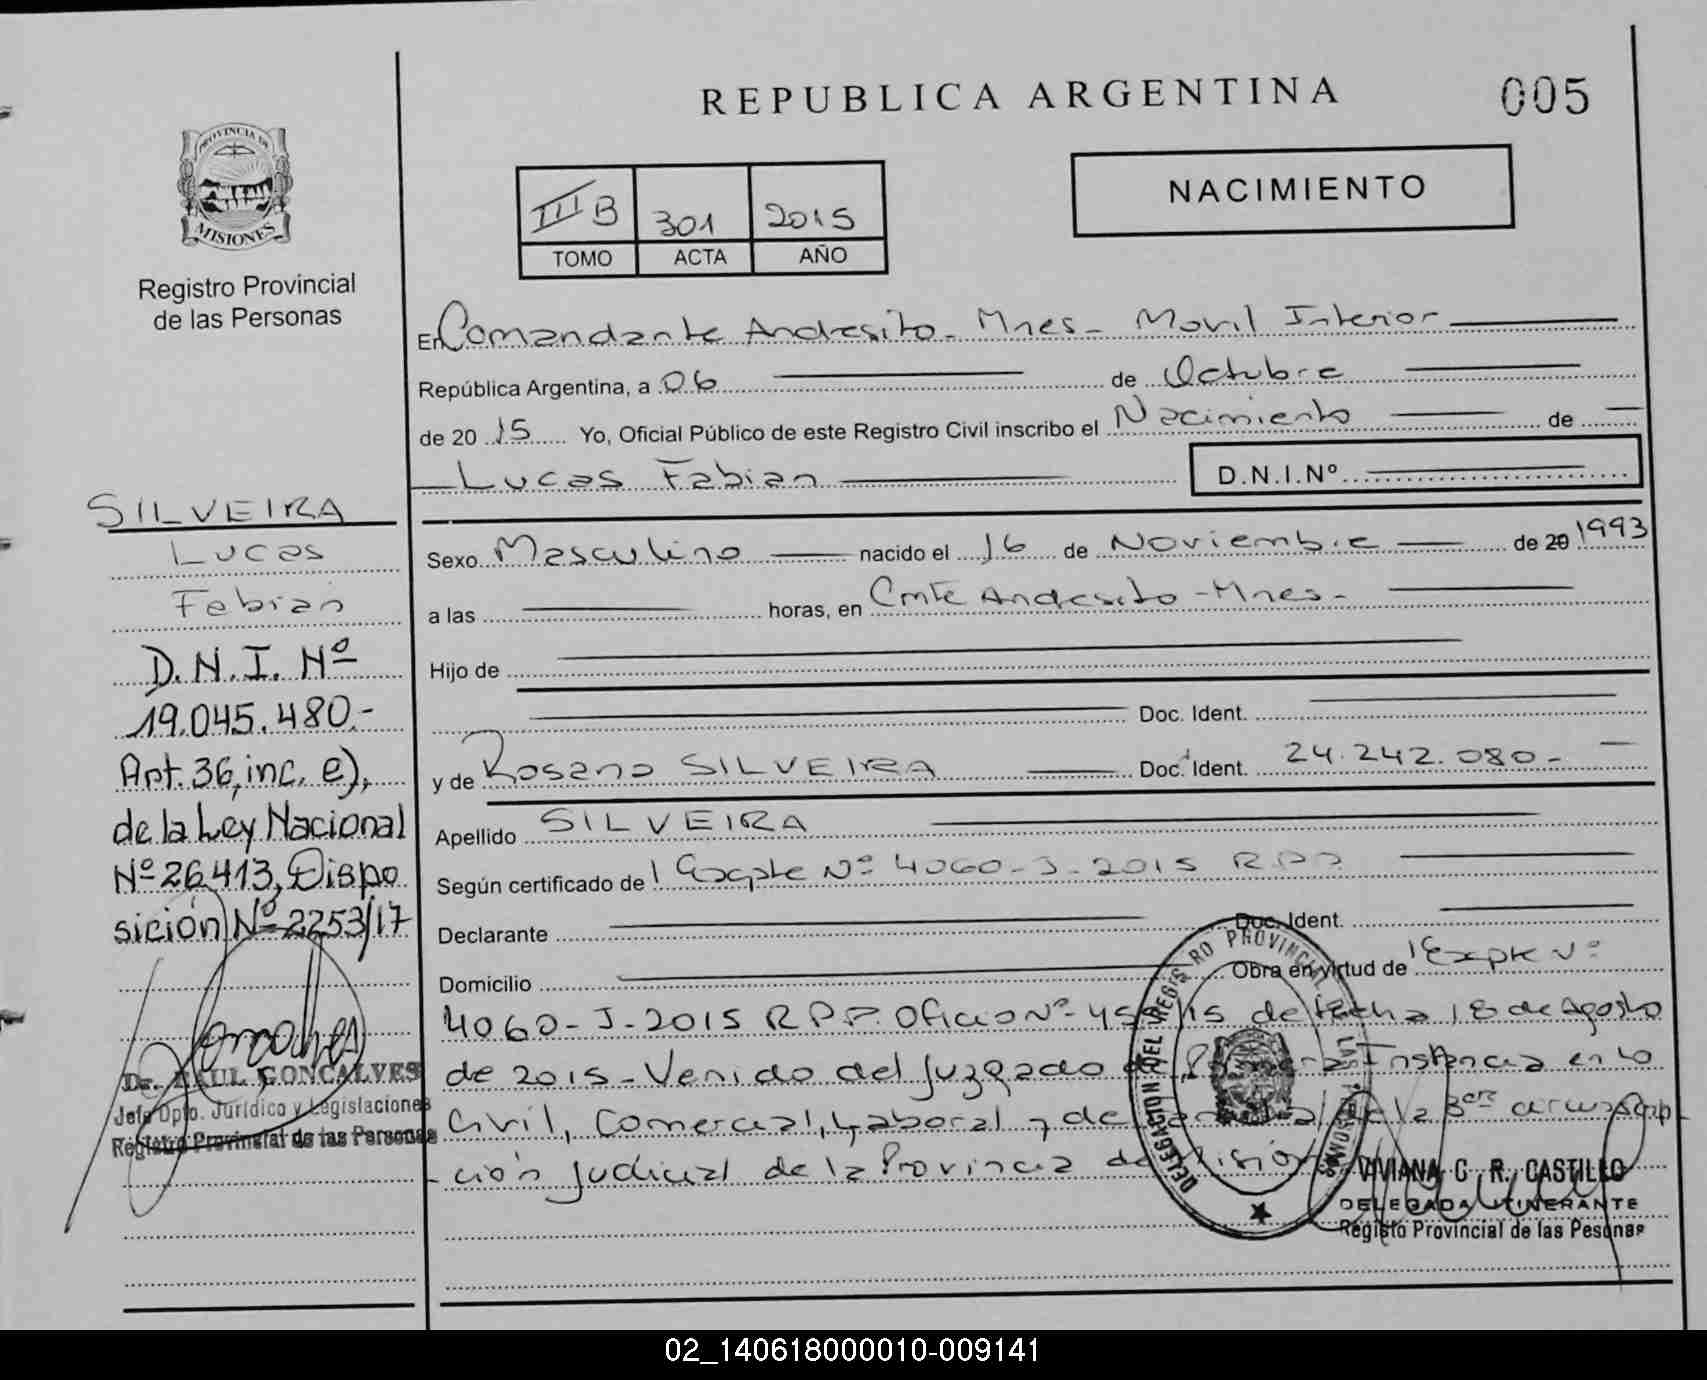 REPUBLICA ARGENTINA
005
PROVINCIA DE
MISIONES
Registro Provincial
de las Personas
III B 301 2015
TOMO ACTA AÑO
NACIMIENTO
En Comandante Andresito - Mnes - Movil Interior
República Argentina, a 06 de Octubre
de 20 15 Yo, Oficial Público de este Registro Civil inscribo el Nacimiento de
Lucas Fabian D.N.I.Nº
Sexo Masculino nacido el 16 de Noviembre de 20 1993
a las horas, en Cmte Andresito - Mnes -
Hijo de
Doc. Ident.
y de Rosana SILVEIRA Doc. Ident. 24.242.080.-
Apellido SILVEIRA
Según certificado de Expte Nº 4060-J-2015 R.P.P.
Declarante Doc. Ident.
Domicilio Obra en virtud de Expte Nº
4060-J-2015 R.P.P. Oficio Nº de fecha 18 de Agosto
de 2015 - Venido del Juzgado de Primera Instancia en lo
Civil, Comercial, Laboral y de de la 3era circunscrip-
ción judicial de la Provincia de Misiones
DELEGACION DEL REGISTRO PROVINCIAL DE LAS PERSONAS
VIVIANA C. R. CASTILLO
DELEGADA ITINERANTE
Registo Provincial de las Pesonas
SILVEIRA
Lucas
Fabian
D.N.I. Nº
19.045.480.-
Art. 36, inc. e),
de la Ley Nacional
Nº 26.413, Dispo
sición Nº 2253/17
Dr. RAUL GONCALVES
Jefe Dpto. Jurídico y Legislaciones
Registro Provincial de las Personas
02_140618000010-009141